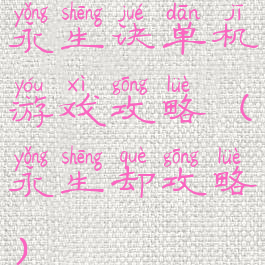 yǒng shēng jué dān jī
永生诀单机
yóu xì gōng lüè
游戏攻略（
yǒng shēng què gōng lüè
永生却攻略
）